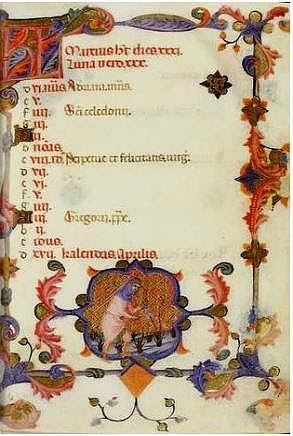 Martius ht dies xxxi.
Luna vero xxx.
d vi. nūs Adriani. mris.
e v.
f iiii. Sci celedonii
g iii.
d nōis.
e viii. id Perpetue et felicitatis. virg.
d vii.
e vi.
f v.
g iiii. Gregorii. ppe.
iii.
e idus.
d xvii. kalendas Aprilis.